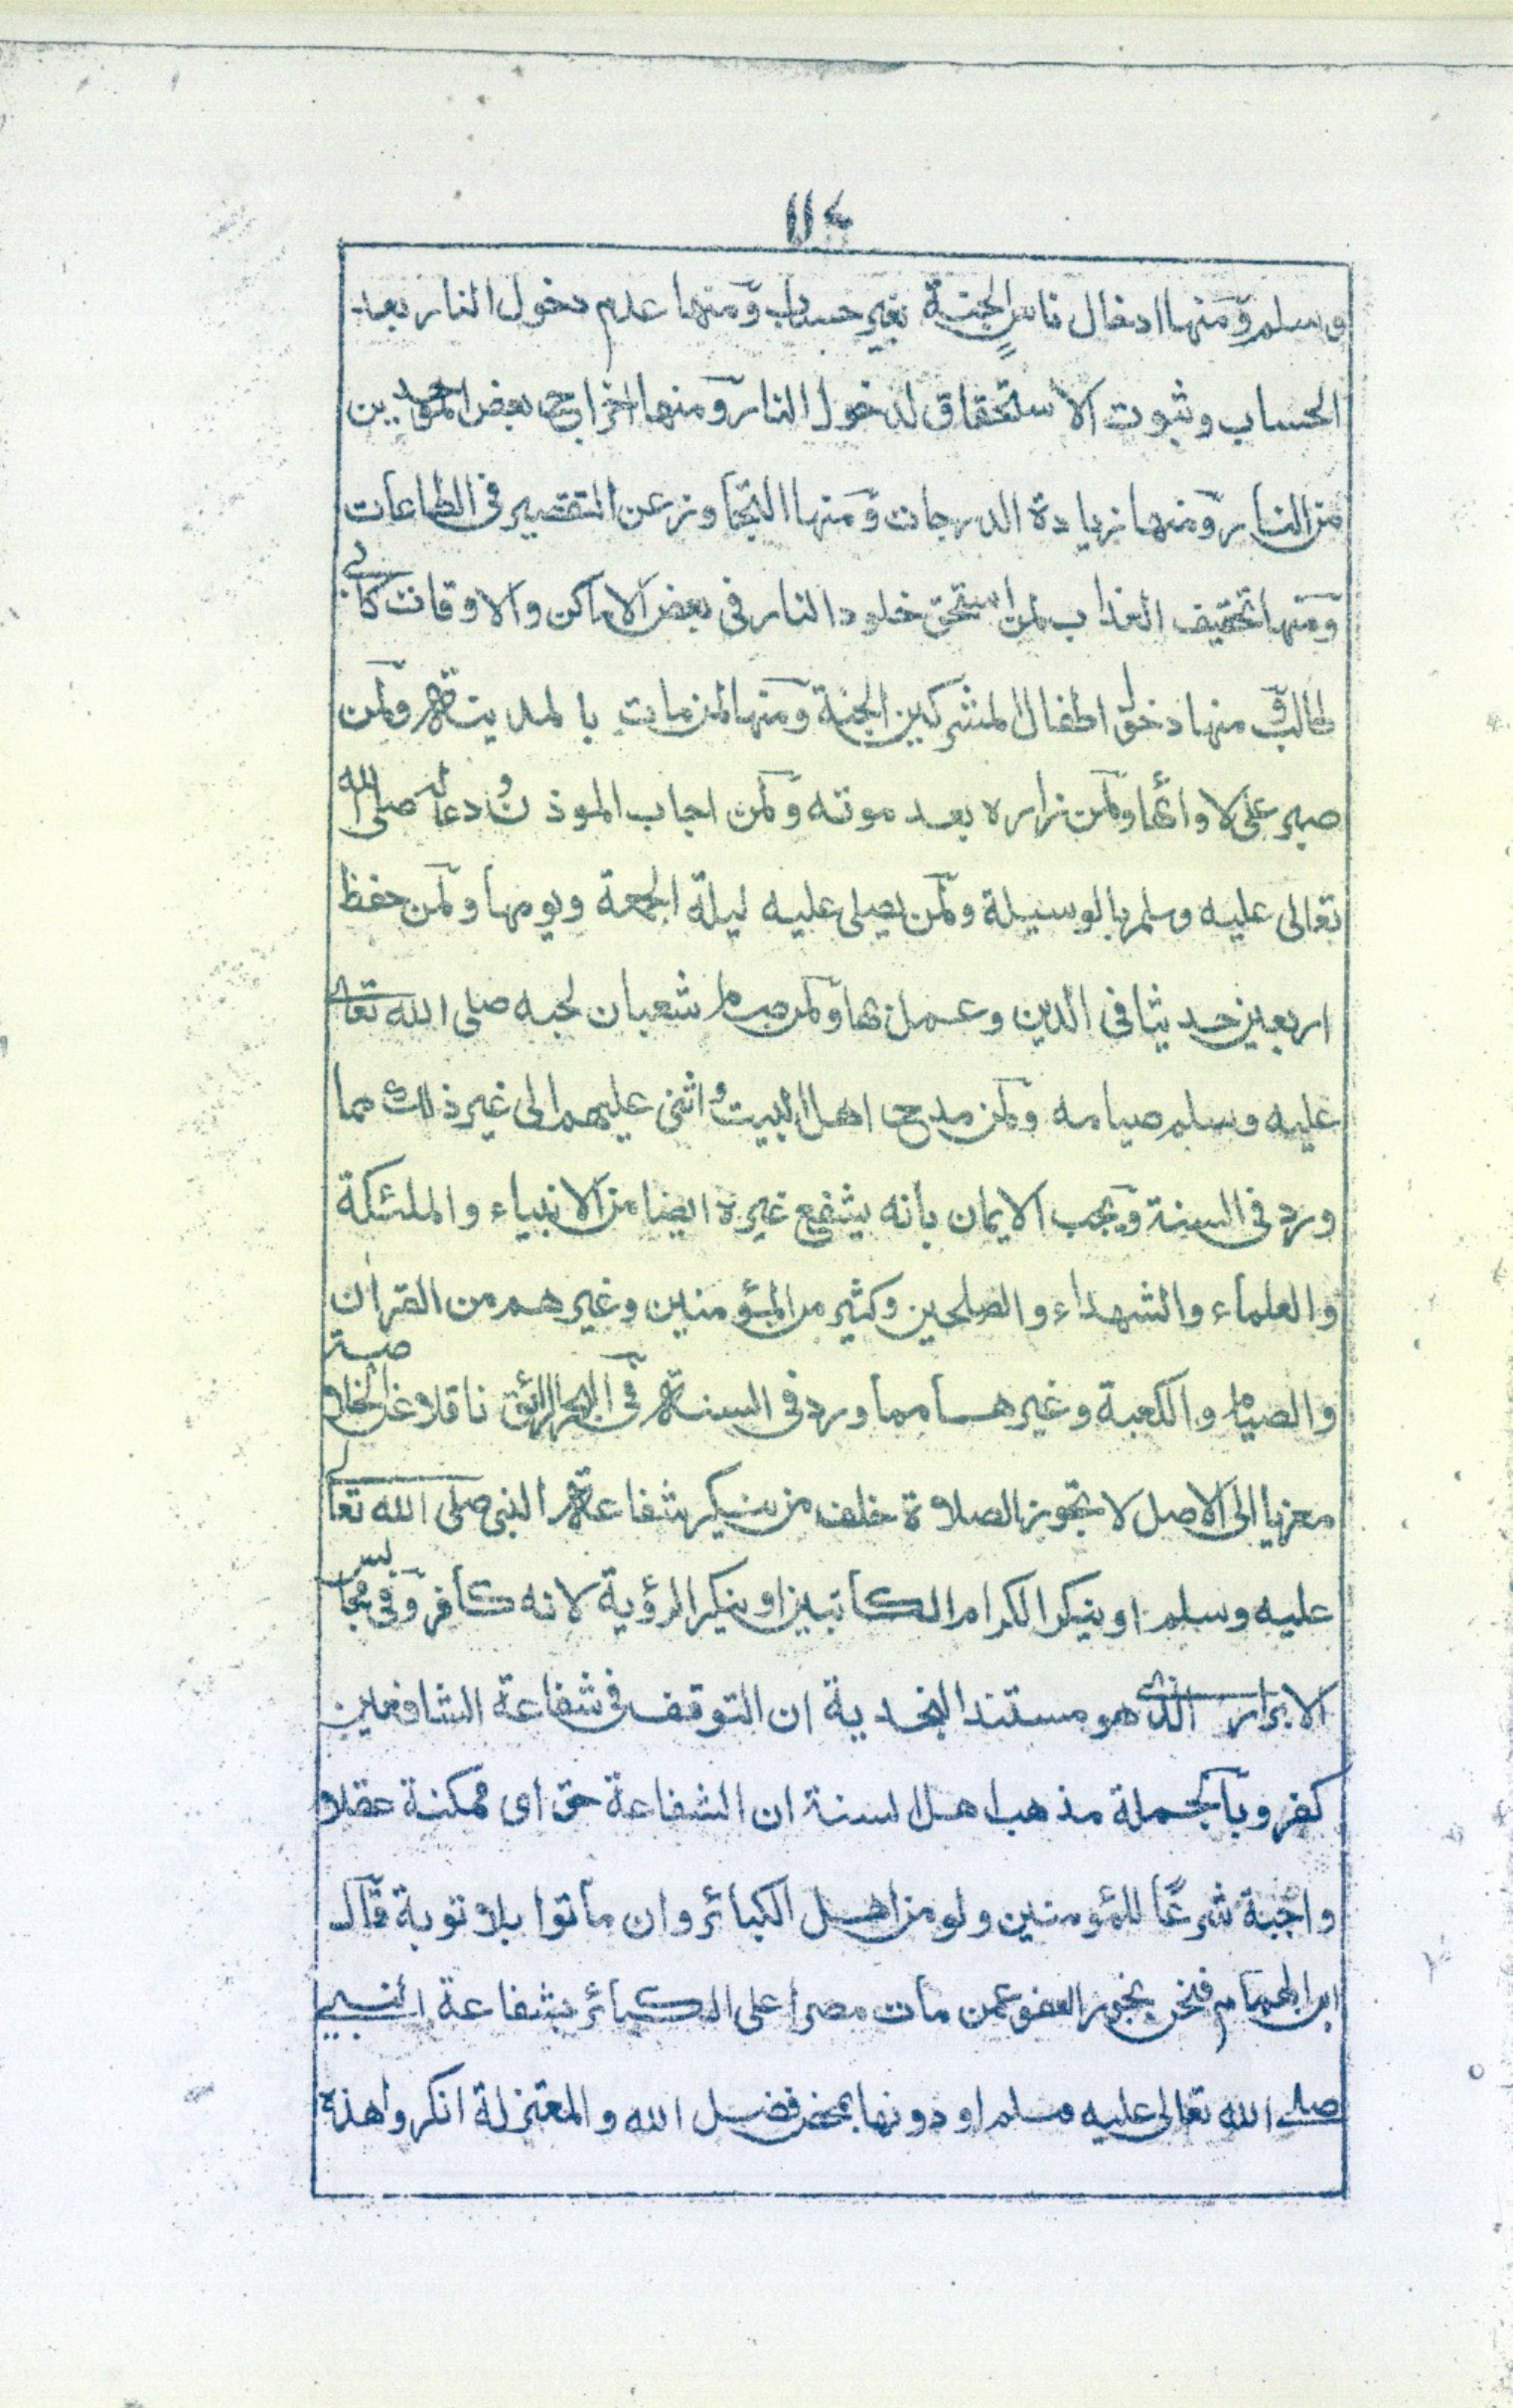 ١١٤
وسلم ومنها ادخال ناسٍ الجنة بغير حساب ومنها عدم دخول النار بعد
الحساب وثبوت الاستحقاق لدخول النار ومنها اخراج بعض الموحدين
من النار ومنها زيادة الدرجات ومنها التجاوز عن التقصير فى الطاعات
ومنها تخفيف العذاب لمن استحق خلود النار فى بعض الاماكن والاوقات كابى
طالب ومنها دخول اطفال المشركين الجنة ومنها لمن مات بالمدينة ولمن
صبر على لاوائها ولمن زاره بعد موته ولمن اجاب الموذن ودعا له صلى الله
تعالى عليه وسلم بالوسيلة ولمن يصلى عليه ليلة الجمعة ويومها ولمن حفظ
اربعين حديثا فى الدين وعمل بها ولمن صام شعبان لحبه صلى الله تعالى
عليه وسلم صيامه ولمن مدح اهل البيت واثنى عليهم الى غير ذلك مما
ورد فى السنة ويجب الايمان بانه يشفع غيره ايضا من الانبياء والملئكة
والعلماء والشهداء والصلحين وكثير من المؤمنين وغيرهم من القران
والصيام والكعبة وغيرها مما ورد فى السنة فى البحر الرائق ناقلا عن الخلاصة
معزيا الى الاصل لا تجوز الصلاة خلف من ينكر شفاعة النبى صلى الله تعالى
عليه وسلم او ينكر الكرام الكاتبين او ينكر الرؤية لانه كافر وفى مجالس
الابرار الذى هو مستند النجدية ان التوقف فى شفاعة الشافعين
كفر وبالجملة مذهب اهل السنة ان الشفاعة حق اى ممكنة عقلا و
واجبة شرعًا للمؤمنين ولو من اهل الكبائر وان ماتوا بلا توبة قال
ابن الهمام فنحن نجوز العفو عمن مات مصرا على الكبائر بشفاعة النبى
صلى الله تعالى عليه وسلم او دونها بمحض فضل الله والمعتزلة انكروا هذه